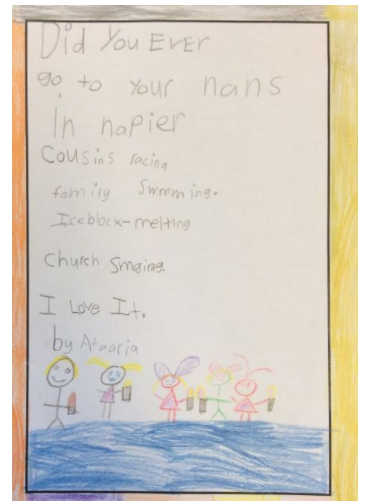 Did You Ever
go to your nans
In napier
Cousins racing
family Swmming.
Iceblock-melting
Church Smging.
I Love It.
by Ataaria